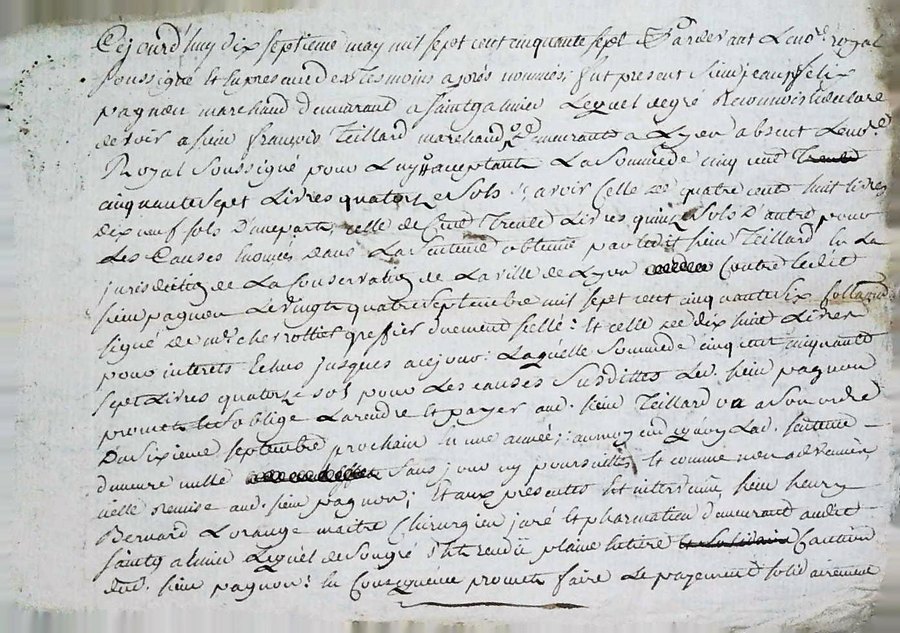 Cejourd'huy dix septieme may mil sept cent cinquante sept Pardevant Le nore royal
soussigné Et En presence des Tesmoins apres nommés, fut present sieur jean felix
pagnon marchand demeurant a saintgalmier Lequel de gré Reconnoit Et declare
devoir a sieur françois Teillard marchand demeurant a Lyon absent Le nore
Royal Soussigné pour Luy acceptant La Somme de cinq cent
cinquante sept Livres quatorze sols, savoir Celle de quatre cent huit livres
dix neuf sols D'une part, celle de Cent Trente Livres quinze sols D'autre pour
Les Causes Enoncées Dans La Sentence obtenue par ledit sieur Teillard En La
jurisdiction de La Conservation de La ville de Lyon Contre Ledit
sieur pagnon Le vingt quatre septembre mil sept cent cinquante six Collationné
signé de mr cherrottier greffier duement scellé: Et celle de dix huit Livres
pour interets Echus jusques a cejour: Laquelle Somme de cinq cent cinquante
sept Livres quatorze sols pour Les causes Susdittes Led. sieur pagnon
promet s'oblige La rendre Et payer aud. sieur Teillard ou a son ordre
Du sixieme septembre prochain En une année; au moyend quoy Lad. sentence
demeure nulle sans jour ny poursuittes Et comme non advenüe
remise aud. sieur pagnon; Et aux presentes Est intervenu sieur henry
Bernard Lorange maitre Chirurgien juré Et pharmatien demeurant audit
saintgalmier Lequel de Son gré s'est rendü plaine Entiere Caution
dud. sieur pagnon: En Consequence promet faire Le payement solidairement